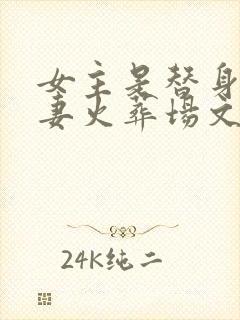 女主是替身
妻火葬场文
24K纯二